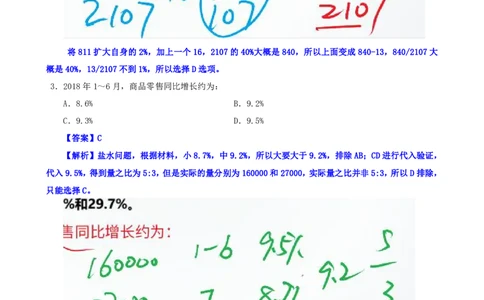 2107 107 2107
将 811 扩大自身的 2%，加上一个 16，2107 的 40%大概是 840，所以上面变成 840-13，840/2107 大
概是 40%，13/2107 不到 1%，所以选择 D 选项。
3．2018 年 1～6 月，商品零售同比增长约为：
A．8.6% B．9.2%
C．9.3% D．9.5%
【答案】C
【解析】盐水问题，根据材料，小 8.7%，中 9.2%，所以大要大于 9.2%，排除 AB；CD 进行代入验证，
代入 9.5%，得到量之比为 5:3，但是实际的量分别为 160000 和 27000，实际量之比并非 5:3，所以 D 排除，
只能选择 C。
%和29.7%。
售同比增长约为：
160000 1-6 9.5% 5
9.2
7 8.7% 3